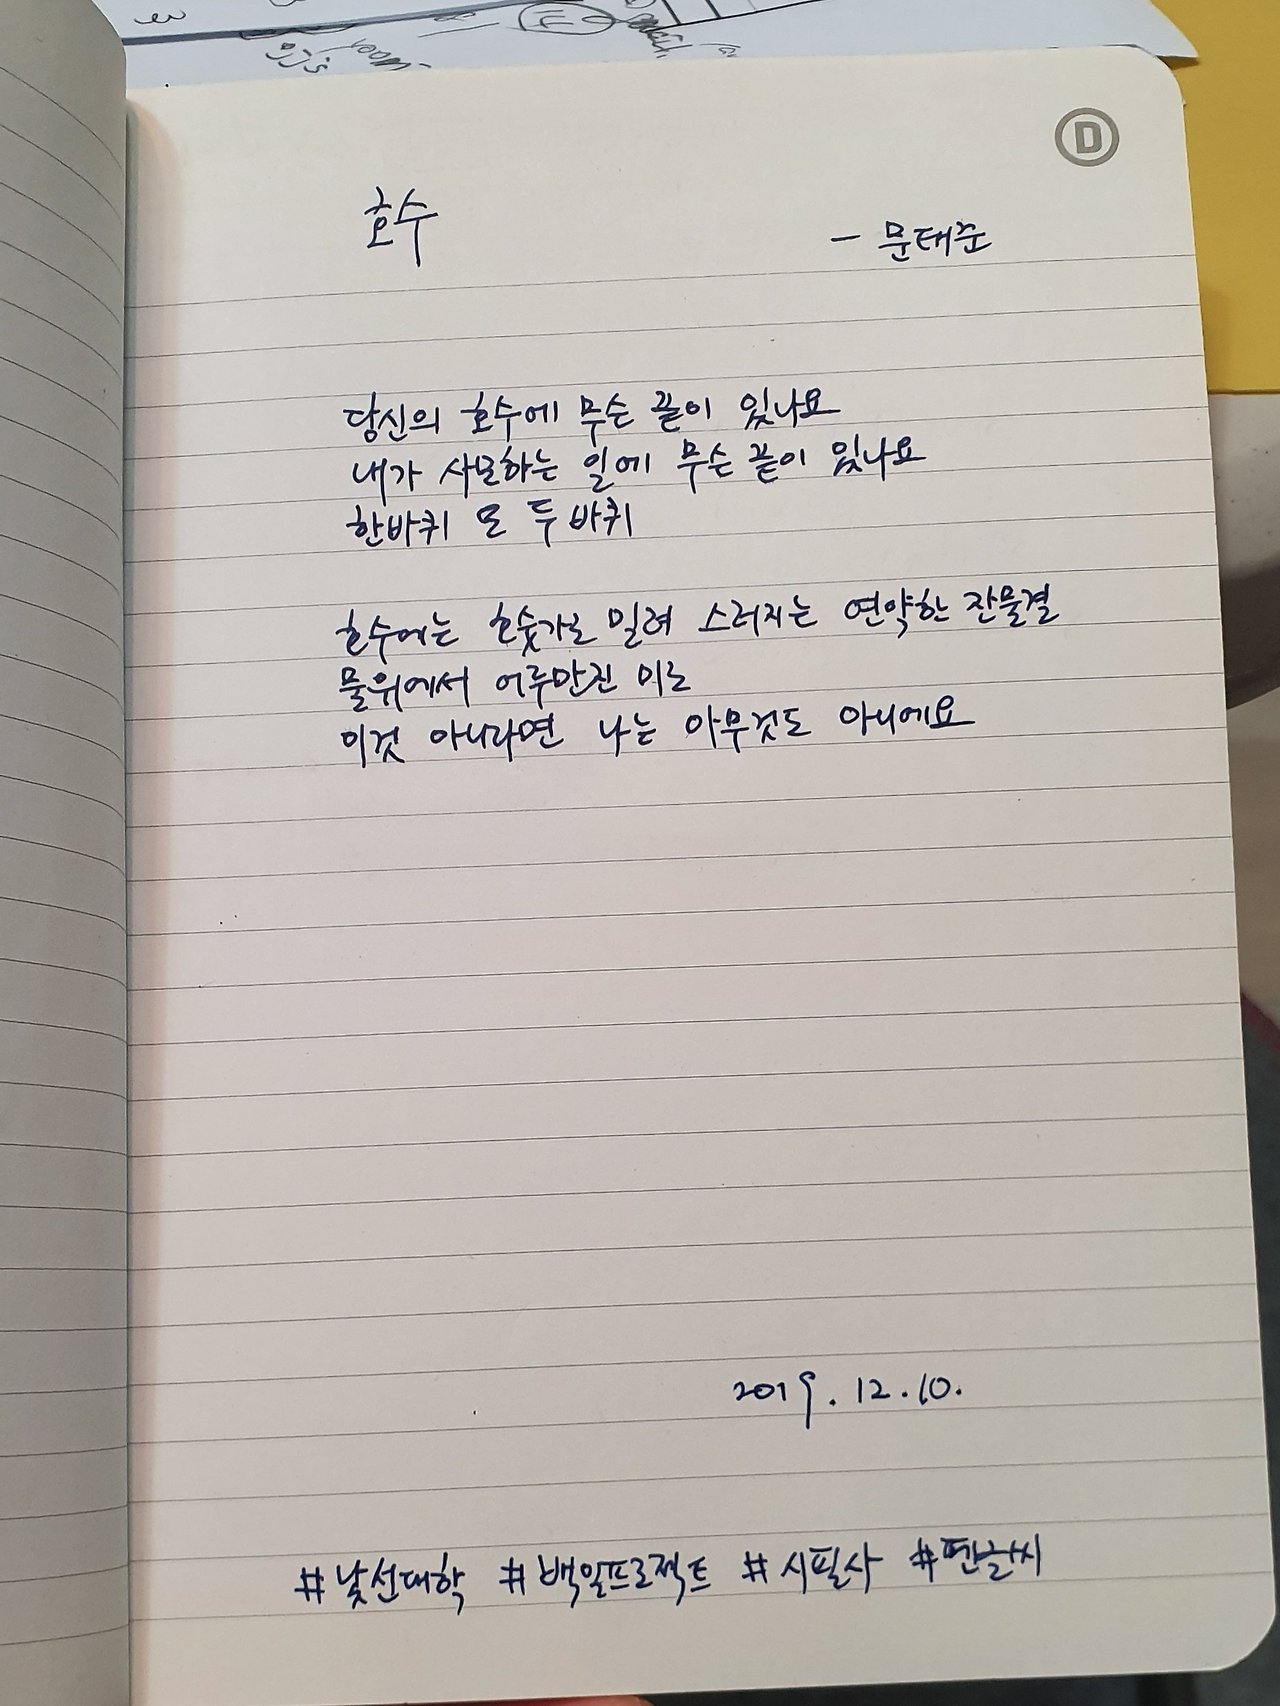 room
D
호수
- 문태준
당신의 호수에 무슨 끝이 있나요
내가 사모하는 일에 무슨 끝이 있나요
한바퀴 또 두 바퀴
호수에는 호숫가로 밀려 스러지는 연약한 잔물결
물위에서 어루만진 미로
이것 아니라면 나는 아무것도 아니에요
2019. 12. 10.
#낯선대학 #백일프로젝트 #시필사 #펜글씨